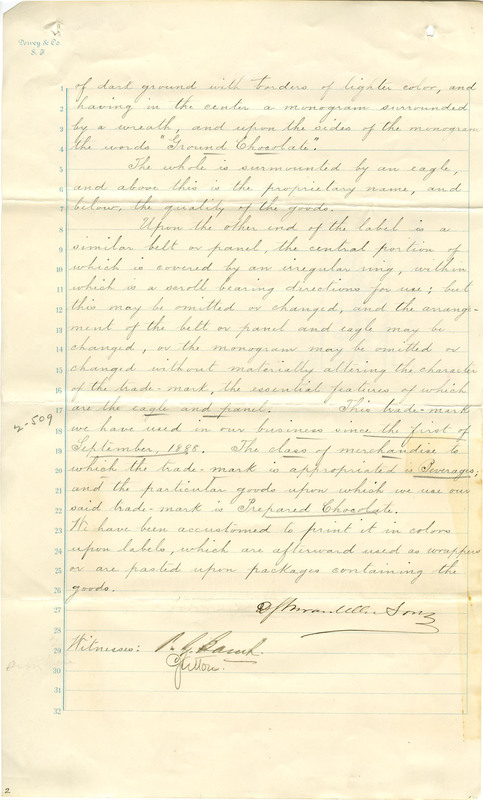 Dewey & Co.
S. F.
1 of dark ground with borders of lighter color, and
2 having in the center a monogram surrounded
3 by a wreath, and upon the sides of the monogram
4 the words "Ground Chocolate".
5 The whole is surmounted by an eagle,
6 and above this is the proprietary name, and
7 below, the quality of the goods.
8 Upon the other end of the label is a
9 similar belt or panel, the central portion of
10 which is covered by an irregular ring, within
11 which is a scroll bearing directions for use; but
12 this may be omitted or changed, and the arrange-
13 ment of the belt or panel and eagle may be
14 changed, or the monogram may be omitted or
15 changed without materially altering the character
16 of the trade-mark, the essential features of which
17 are the eagle and panel. This trade-mark
2-509
18 we have used in our business since the first of
19 September, 1888. The class of merchandise to
20 which the trade-mark is appropriated is Beverages;
21 and the particular goods upon which we use our
22 said trade-mark is Prepared Chocolate.
23 We have been accustomed to print it in colors
24 upon labels, which are afterward used as wrappers
25 or are pasted upon packages containing the
26 goods.
27
28
29 Witnesses:
30
31
32
2